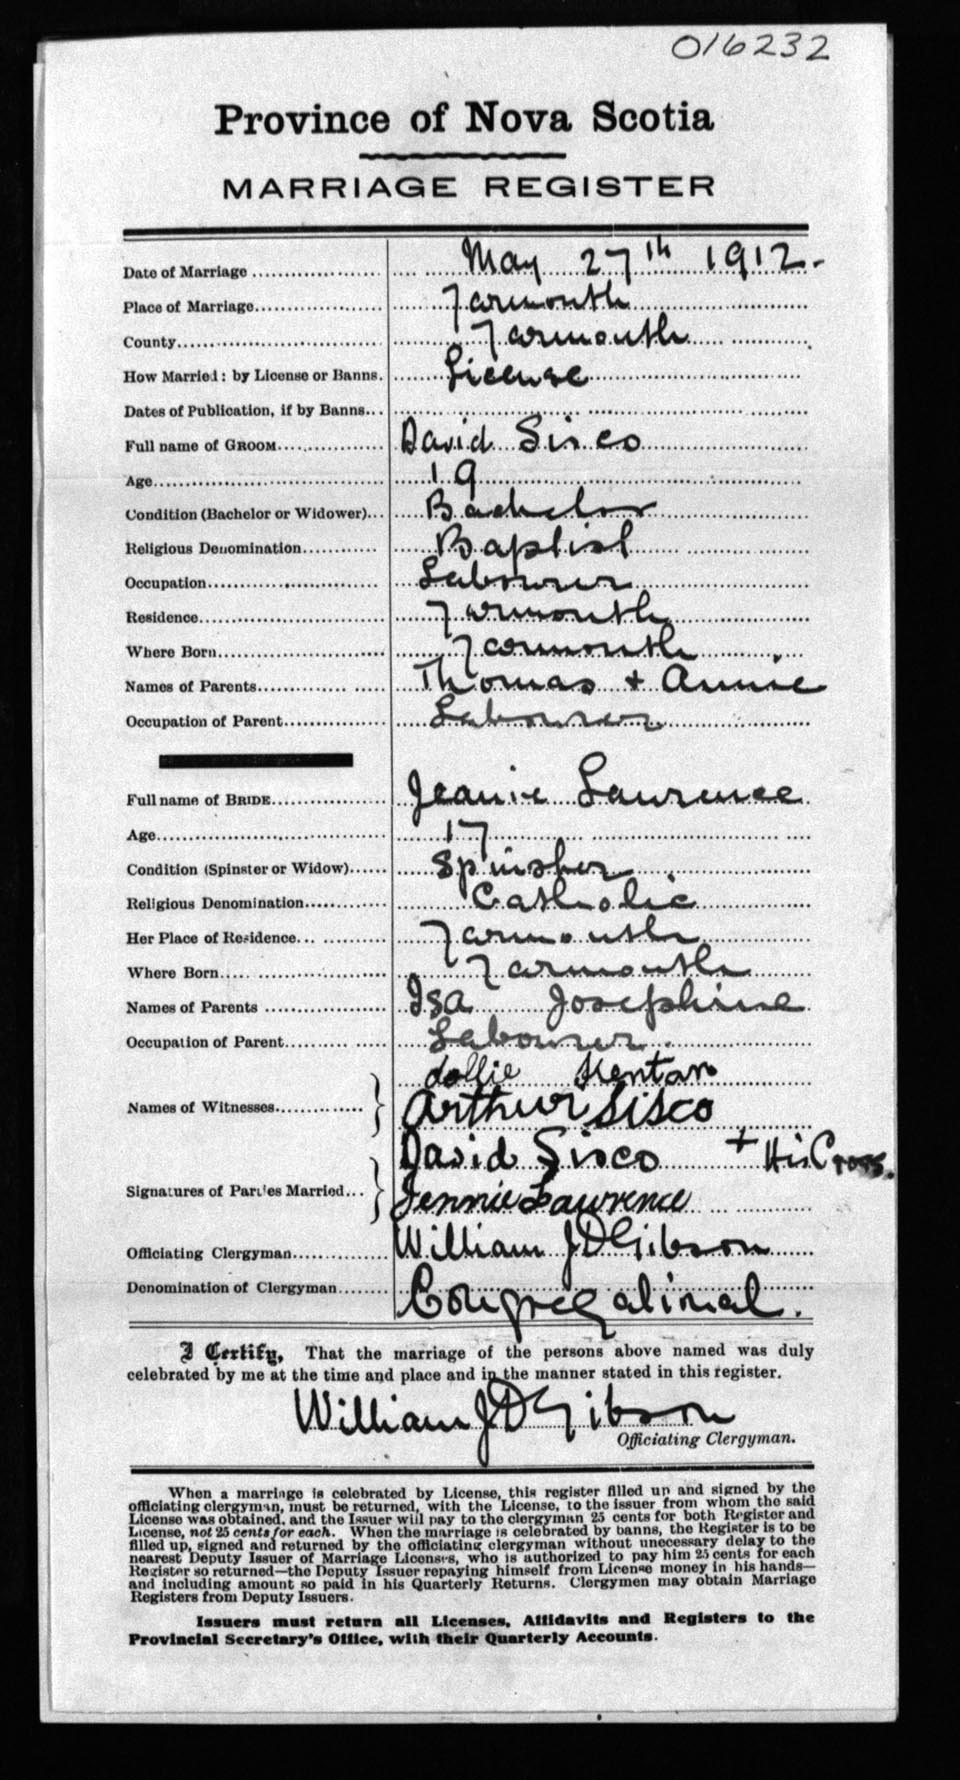 016232
Province of Nova Scotia
MARRIAGE REGISTER
Date of Marriage May 27th 1912.
Place of Marriage Yarmouth
County Yarmouth
How Married: by License or Banns. License
Dates of Publication, if by Banns
Full name of GROOM David Sisco
Age 19
Condition (Bachelor or Widower) Bachelor
Religious Denomination Baptist
Occupation Labourer
Residence Yarmouth
Where Born Yarmouth
Names of Parents Thomas + Annie
Occupation of Parent Labourer
Full name of BRIDE Jeanie Lawrence
Age 17
Condition (Spinster or Widow) Spinster
Religious Denomination Catholic
Her Place of Residence Yarmouth
Where Born Yarmouth
Names of Parents Isa Josephine
Occupation of Parent Labourer.
Dollie
Names of Witnesses Arthur Sisco
David Sisco + His Cross.
Signatures of Parties Married Jennie Lawrence
Officiating Clergyman William J D Gibson
Denomination of Clergyman Congregational.
I Certify, That the marriage of the persons above named was duly
celebrated by me at the time and place and in the manner stated in this register.
William J D Gibson
Officiating Clergyman.
When a marriage is celebrated by License, this register filled up and signed by the
officiating clergyman, must be returned, with the License, to the issuer from whom the said
License was obtained, and the Issuer will pay to the clergyman 25 cents for both Register and
License, not 25 cents for each. When the marriage is celebrated by banns, the Register is to be
filled up, signed and returned by the officiating clergyman without unnecessary delay to the
nearest Deputy Issuer of Marriage Licenses, who is authorized to pay him 25 cents for each
Register so returned—the Deputy Issuer repaying himself from License money in his hands—
and including amount so paid in his Quarterly Returns. Clergymen may obtain Marriage
Registers from Deputy Issuers.
Issuers must return all Licenses, Affidavits and Registers to the
Provincial Secretary's Office, with their Quarterly Accounts.